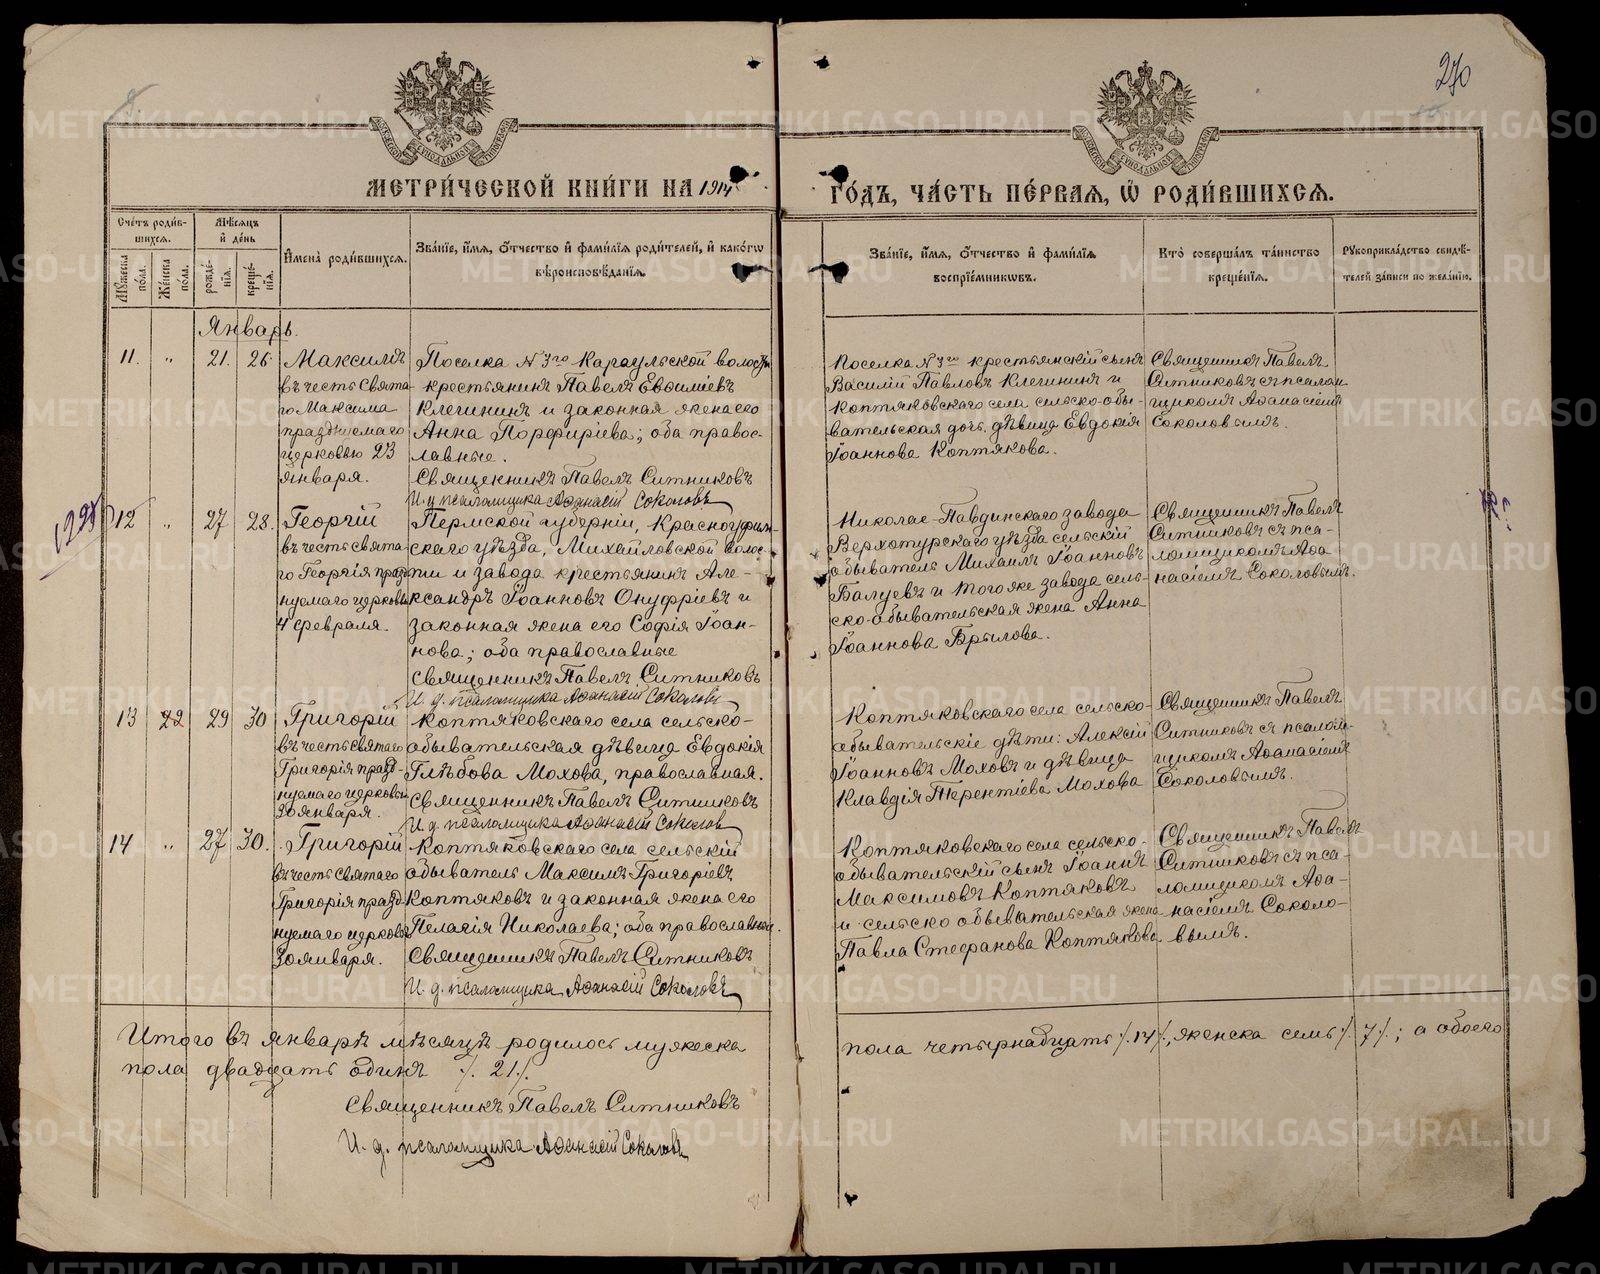 270
МЕТРИ́ЧЕСКОЙ КНИ́ГИ НА 1914
ГО́ДЪ, ЧА́СТЬ ПЕ́РВАѦ, Ѽ РОДИ́ВШИХСѦ.
Сче́тъ роди́в-
шихсѧ.
Мѣ́сѧцъ
и҆ де́нь
Мꙋ́жеска
по́ла.
Же́нска
по́ла.
рожде́-
нїѧ.
креще́-
нїѧ.
И҆мена̀ роди́вшихсѧ.
Зва́нїе, и҆́мѧ, ѻ҆́тчество и҆ фами́лїѧ роди́телей, и҆ како́гѡ
вѣроисповѣ́данїѧ.
Зва́нїе, и҆́мѧ, ѻ҆́тчество и҆ фами́лїѧ
воспрїе́мникѡвъ.
Кто̀ соверша́лъ та́инство
креще́нїѧ.
Рꙋкоприкла́дство свидѣ́-
телей за́писи по жела́нїю.
Январь.
11. " 21. 26.
Максимъ
въ честь свята
го Максима
празднуемаго
церковью 23
января.
Поселка N 3го Караульской волости
крестьянинъ Павелъ Евѳиміевъ
Клегининъ и законная жена его
Анна Порфиріева; оба правос-
лавные.
Священникъ Павелъ Ситниковъ
И. д. псаломщика Аѳанасій Соколовъ
Поселка N 3го крестьянскій сынъ
Василій Павловъ Клегининъ и
Коптяковскаго села сельско-обы-
вательская дочь дѣвица Евдокія
Іоаннова Коптякова.
Священникъ Павелъ
Ситниковъ съ псалом
щикомъ Аѳанасіемъ
Соколовымъ.
12 " 27 28.
Георгій
въ честь свята
го Георгія празд
нуемаго церковью
4 февраля.
Пермской губерніи, Красноуфим-
скаго уѣзда, Михайловской волос-
ти и завода крестьянинъ Але-
ксандръ Іоанновъ Онуфріевъ и
законная жена его Софія Іоан-
нова; оба православные
Священникъ Павелъ Ситниковъ
И. д. псаломщика Аѳанасій Соколовъ
Николае-Павдинскаго завода
Верхотурскаго уѣзда сельскій
обыватель Михаилъ Іоанновъ
Балуевъ и того же завода сель-
ско-обывательская жена Анна
Іоаннова Брылова.
Священникъ Павелъ
Ситниковъ съ пса-
ломщикомъ Аѳа
насіемъ Соколовымъ.
13 22 29 30
Григорій
въ честь святаго
Григорія празд-
нуемаго церковью
30 января.
Коптяковскаго села сельско-
обывательская дѣвица Евдокія
Глѣбова Мохова, православная.
Священникъ Павелъ Ситниковъ
И. д. псаломщика Аѳанасій Соколовъ
Коптяковскаго села сельско-
обывательскіе дѣти: Алексій
Іоанновъ Моховъ и дѣвица
Клавдія Терентіева Мохова
Священникъ Павелъ
Ситниковъ съ псалом-
щикомъ Аѳанасіемъ
Соколовымъ.
14 " 27 30.
Григорій
въ честь святаго
Григорія празд
нуемаго церковью
30 января.
Коптяковскаго села сельскій
обыватель Максимъ Григоріевъ
Коптяковъ и законная жена его
Пелагія Николаева; оба православные.
Священникъ Павелъ Ситниковъ
И. д. псаломщика Аѳанасій Соколовъ
Коптяковскаго села сельско-
обывательскій сынъ Іоаннъ
Максимовъ Коптяковъ
и сельско обывательская жена
Павла Стефанова Коптякова
Священникъ Павелъ
Ситниковъ съ пса-
ломщикомъ Аѳа-
насіемъ Соколо-
вымъ.
Итого въ январѣ мѣсяцѣ родилось мужеска
пола четырнадцать ./.14./., женска семь ./.7./.; а обоего
пола двадцать одинъ ./.21./.
Священникъ Павелъ Ситниковъ
И. д. псаломщика Аѳанасій Соколовъ
METRIKI.GASO-URAL.RU